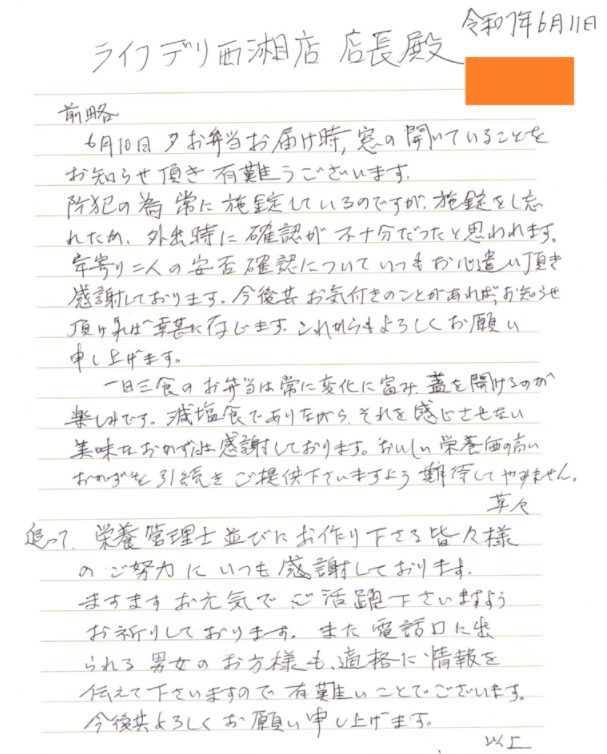 令和7年6月11日
ライフデリ西湘店 店長殿
前略
6月10日夕お弁当お届け時、窓の開いていることを
お知らせ頂き有難うございます。
防犯の為常に施錠しているのですが、施錠をし忘
れたか、外出時に確認が不十分だったと思われます。
年寄り二人の安否確認についていつもお心遣い頂き
感謝しております。今後共お気付きのことがあれば、お知らせ
頂ければ幸甚に存じます。これからもよろしくお願い
申し上げます。
一日三食のお弁当は常に変化に富み、蓋を開けるのが
楽しみです。減塩食でありながら、それを感じさせない
美味なおかずは感謝しております。おいしい栄養価の高い
おかずを引続きご提供下さいますよう期待してやみません。
草々
追って、栄養管理士並びにお作り下さる皆々様
のご努力にいつも感謝しております。
ますますお元気でご活躍下さいますよう
お祈りしております。また電話口に出
られる男女のお方様も、適格に情報を
伝えて下さいますので有難いことでございます。
今後共よろしくお願い申し上げます。
以上